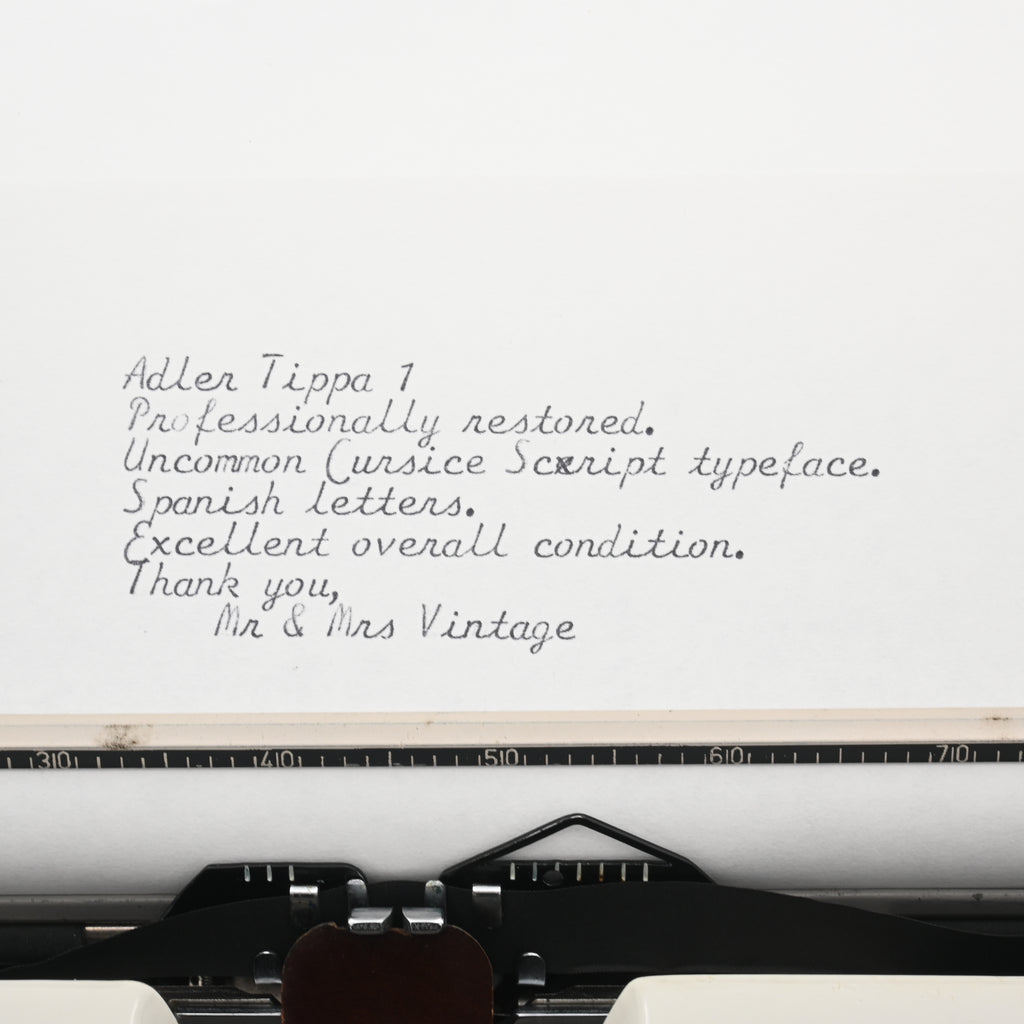 Adler Tippa 1
Professionally restored.
Uncommon Cursice Scxript typeface.
Spanish letters.
Excellent overall condition.
Thank you,
Mr & Mrs Vintage
310 410 510 610 710